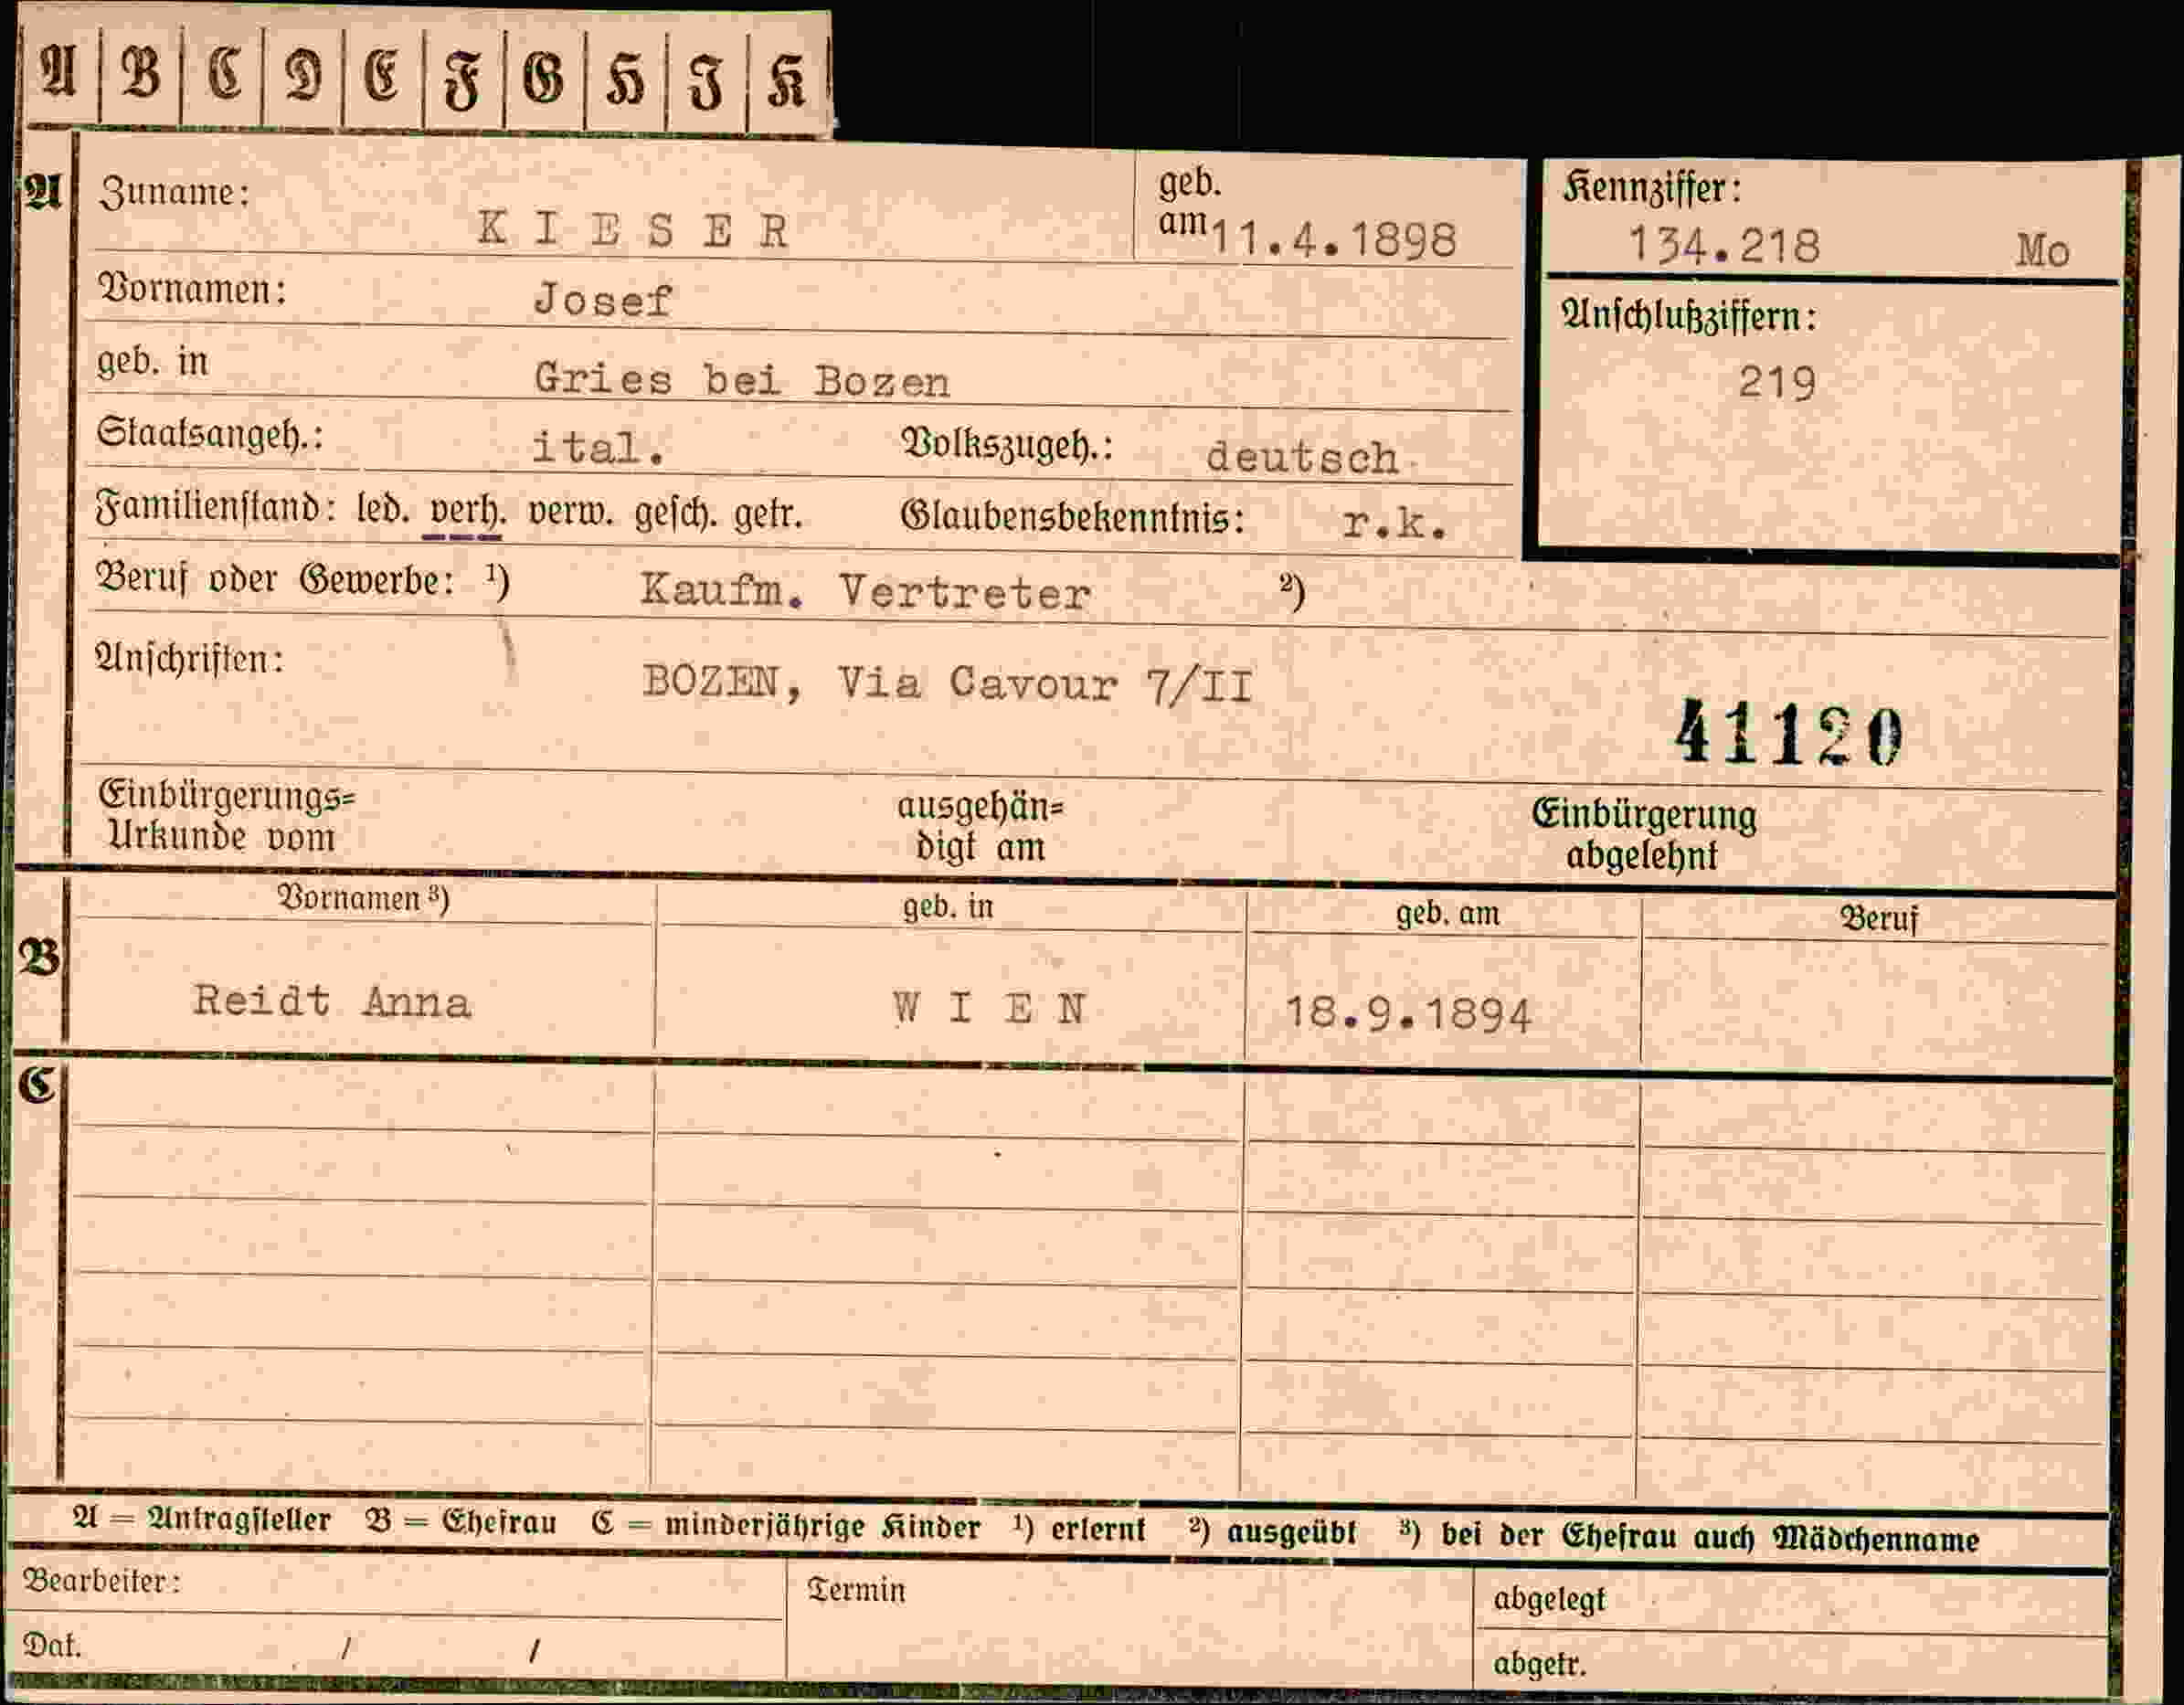 A B C D E F G H I K
A Zuname: KIESER geb. am 11.4.1898
Kennziffer: 134.218 Mo
Vornamen: Josef
Anschlußziffern: 219
geb. in Gries bei Bozen
Staatsangeh.: ital. Volkszugeh.: deutsch
Familienstand: led. verh. verw. gesch. getr. Glaubensbekenntnis: r.k.
Beruf oder Gewerbe: ¹) Kaufm. Vertreter ²)
Anschriften: BOZEN, Via Cavour 7/II
41120
Einbürgerungs= ausgehän= Einbürgerung
Urkunde vom digt am abgelehnt
Vornamen ³) geb. in geb. am Beruf
B Reidt Anna WIEN 18.9.1894
C
A = Antragsteller B = Ehefrau C = minderjährige Kinder ¹) erlernt ²) ausgeübt ³) bei der Ehefrau auch Mädchenname
Bearbeiter: Termin abgelegt
Dat. / / abgetr.